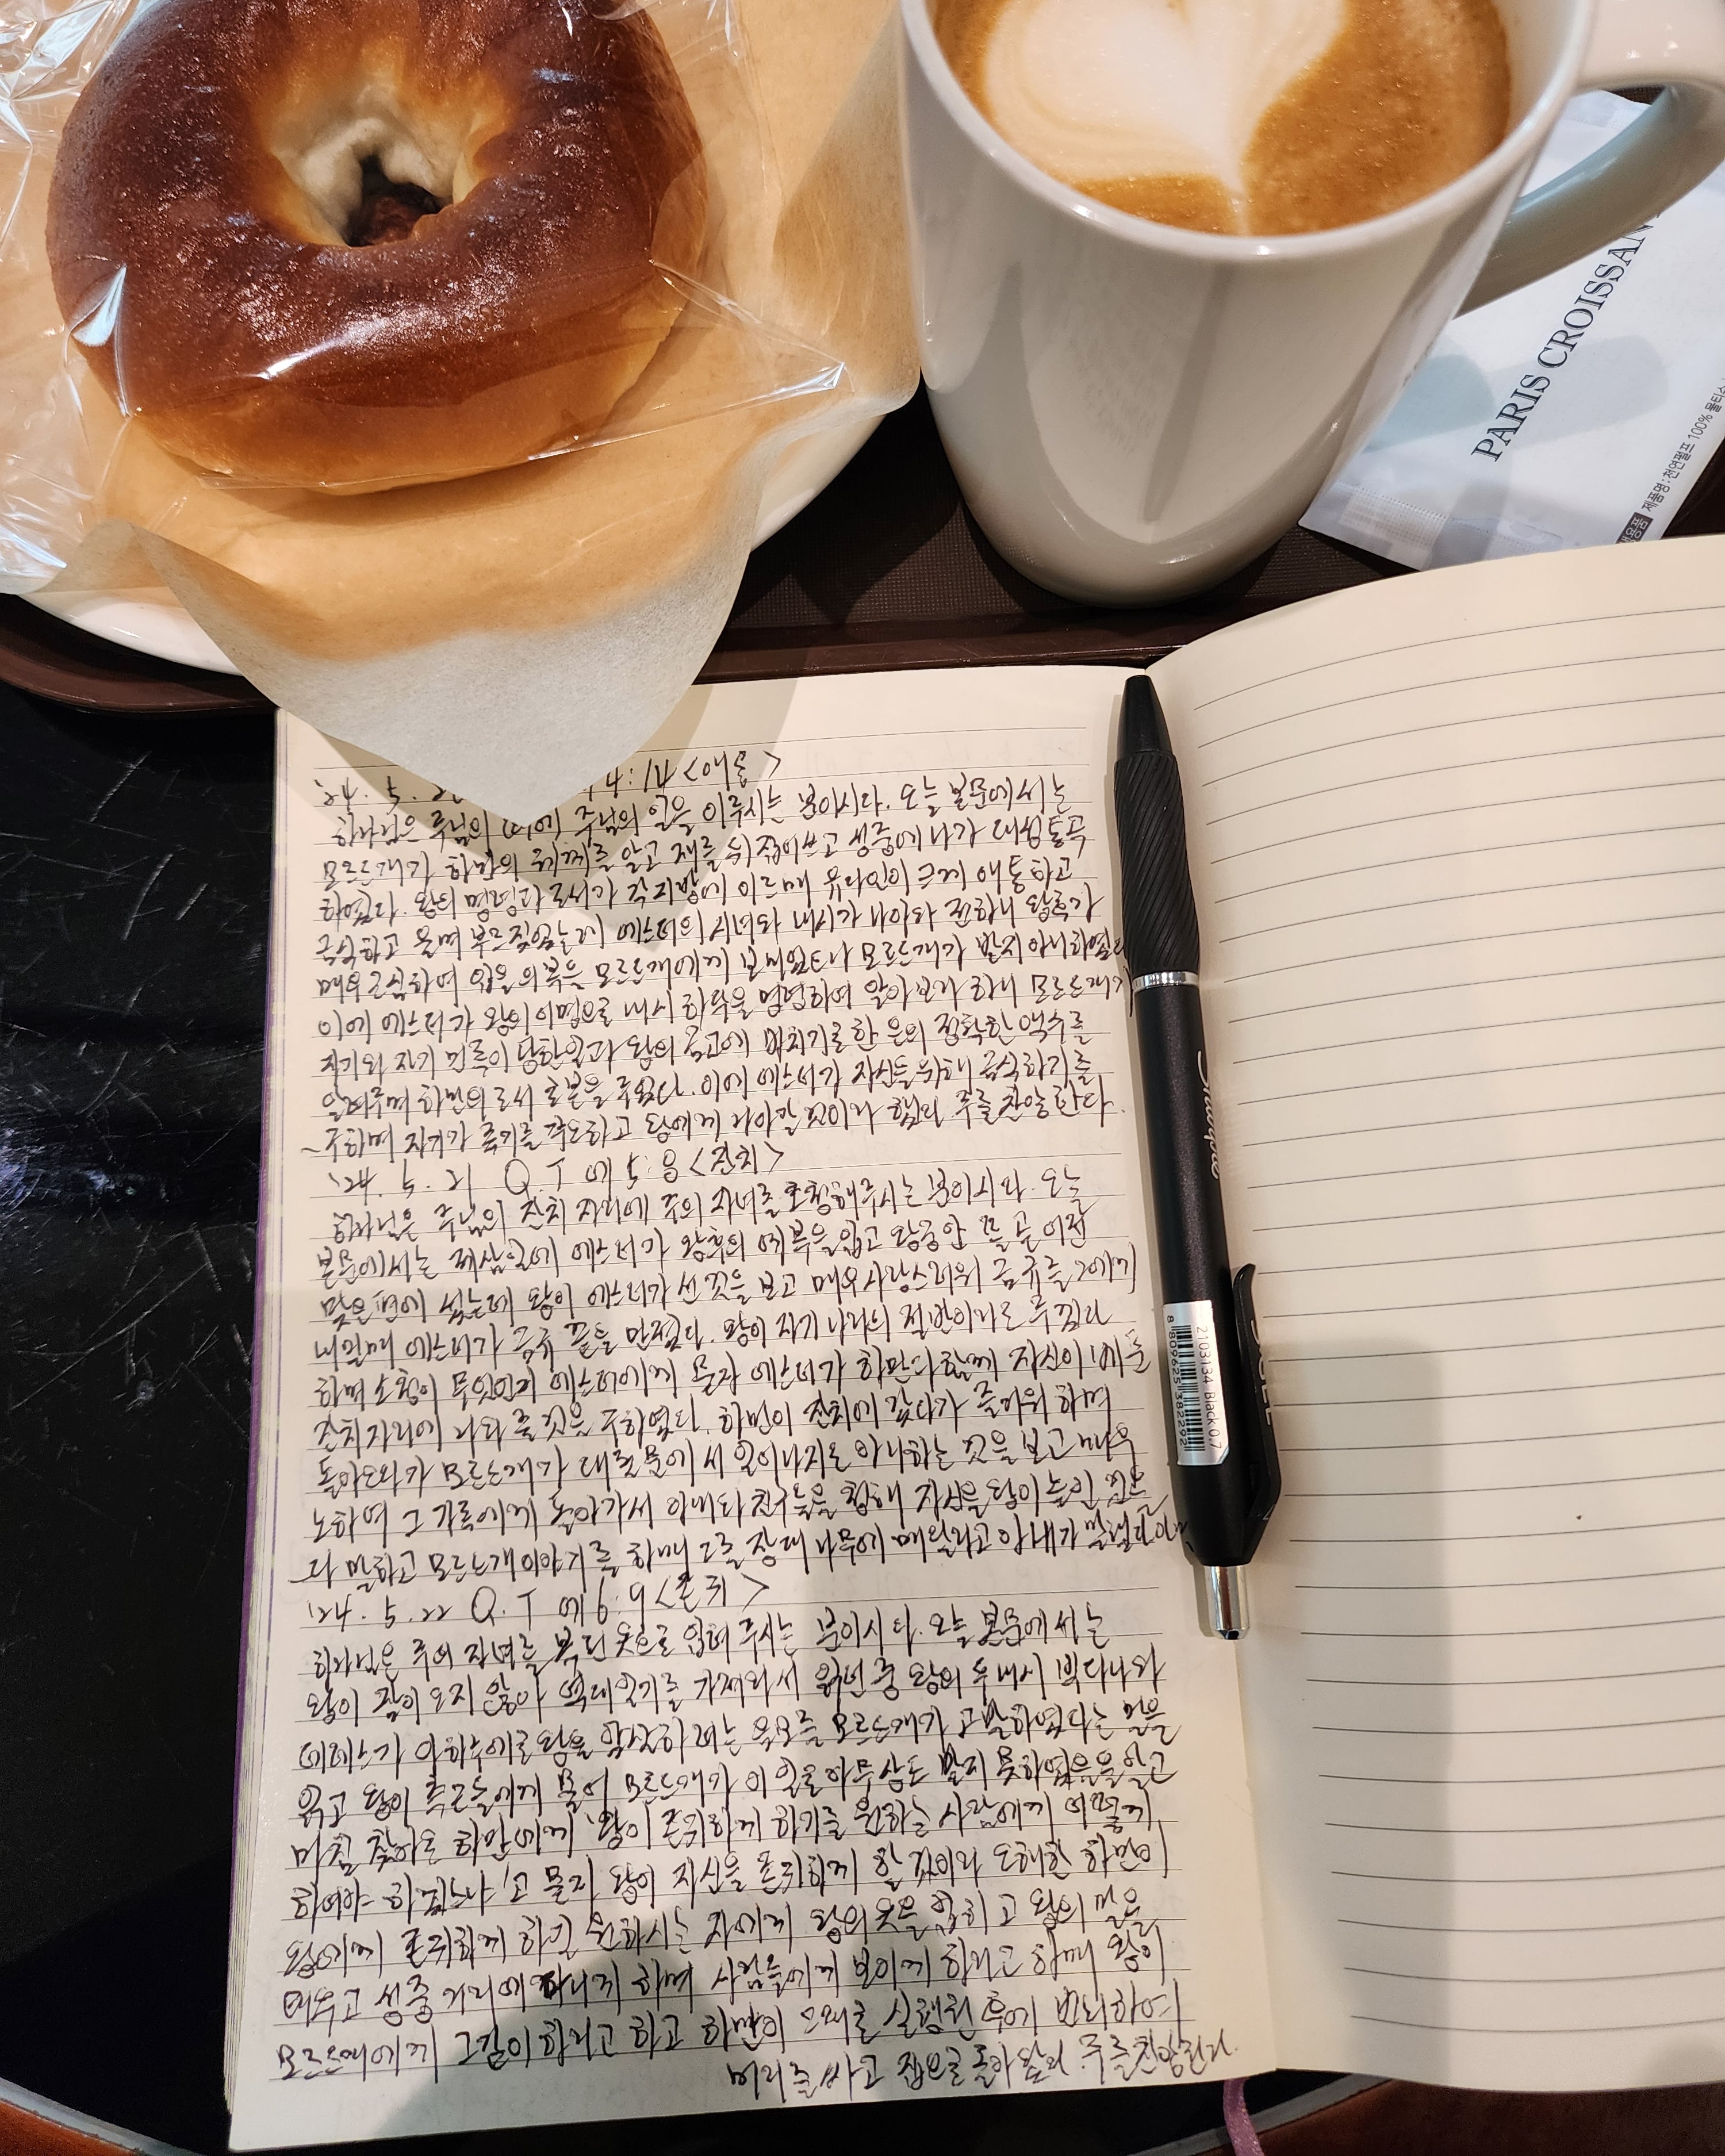 PARIS CROISSAN
제품명:천연펄프 100% 물티슈
'24. 5. 2 4:14 <애통>
하나님은 주님의 때에 주님의 일을 이루시는 분이시다. 오늘 본문에서는
모르드개가 하만의 궤계를 알고 재를 뒤집어쓰고 성중에 나가 대성통곡
하였다. 왕의 명령과 조서가 각 지방에 이르매 유다인이 크게 애통하고
금식하고 울며 부르짖었는데 에스더의 시녀와 내시가 나아와 전하니 왕후가
매우 근심하여 입을 의복을 모르드개에게 보내었으나 모르드개가 받지 아니하였다
이에 에스더가 왕의 어명으로 내시 하닥을 명령하여 알아보라 하니 모르드개가
자기와 자기 민족이 당한 일과 왕의 금고에 바치기로 한 은의 정확한 액수를
알려주며 하만의 조서 초본을 주었다. 이에 에스더가 자신을 위해 금식하기를
구하며 자기가 죽기를 각오하고 왕에게 나아갈 것이라 했다. 주를 찬양한다.
'24. 5. 21 Q.T 에5:8 <잔치>
하나님은 주님의 잔치 자리에 주의 자녀를 초청해주시는 분이시다. 오늘
본문에서는 제삼일에 에스더가 왕후의 예복을 입고 왕궁 안 뜰 곧 어전
맞은편에 섰는데 왕이 에스더가 선 것을 보고 매우 사랑스러워 금 규를 그에게
내밀매 에스더가 금규 끝을 만졌다. 왕이 자기 나라의 절반이라도 주겠다
하며 소청이 무엇인지 에스더에게 묻자 에스더가 하만과 함께 자신이 베푼
잔치자리에 나와 줄 것을 구하였다. 하만이 잔치에 갔다가 즐거워 하며
돌아오다가 모르드개가 대궐 문에서 일어나지도 아니하는 것을 보고 매우
노하여 그 가족에게 돌아가서 아내와 친구들을 청해 자신을 왕이 높인 것을
다 말하고 모르드개이야기를 하매 그를 장대 나무에 매달라고 아내가 말했다
'24. 5. 22 Q.T 에6:9 <존귀>
하나님은 주의 자녀를 복된 옷으로 입혀 주시는 분이시다. 오늘 본문에서는
왕이 잠이 오지 않아 역대일기를 가져와서 읽던 중 왕의 두 내시 빅다나와
데레스가 아하수에로왕을 암살하려는 음모를 모르드개가 고발하였다는 일을
읽고 왕이 측근들에게 물어 모르드개가 이 일로 아무 상도 받지 못하였음을 알고
마침 찾아온 하만에게 '왕이 존귀하게 하기를 원하는 사람에게 어떻게
하여야 하겠느냐'고 묻자 왕이 자신을 존귀하게 할 것이라 오해한 하만이
왕에게 존귀하게 하길 원하시는 자에게 왕의 옷을 입히고 왕의 말을
태우고 성중 거리에 다니게 하며 사람들에게 보이게 하라고 하매 왕이
모르드개에게 그같이 하라고 하고 하만이 그대로 실행된 후에 번뇌하여
머리를 싸고 집으로 돌아 왔다. 주를 찬양한다.
Sharpie
S·GEL
2103134 Black 0.7
8 809625 382292